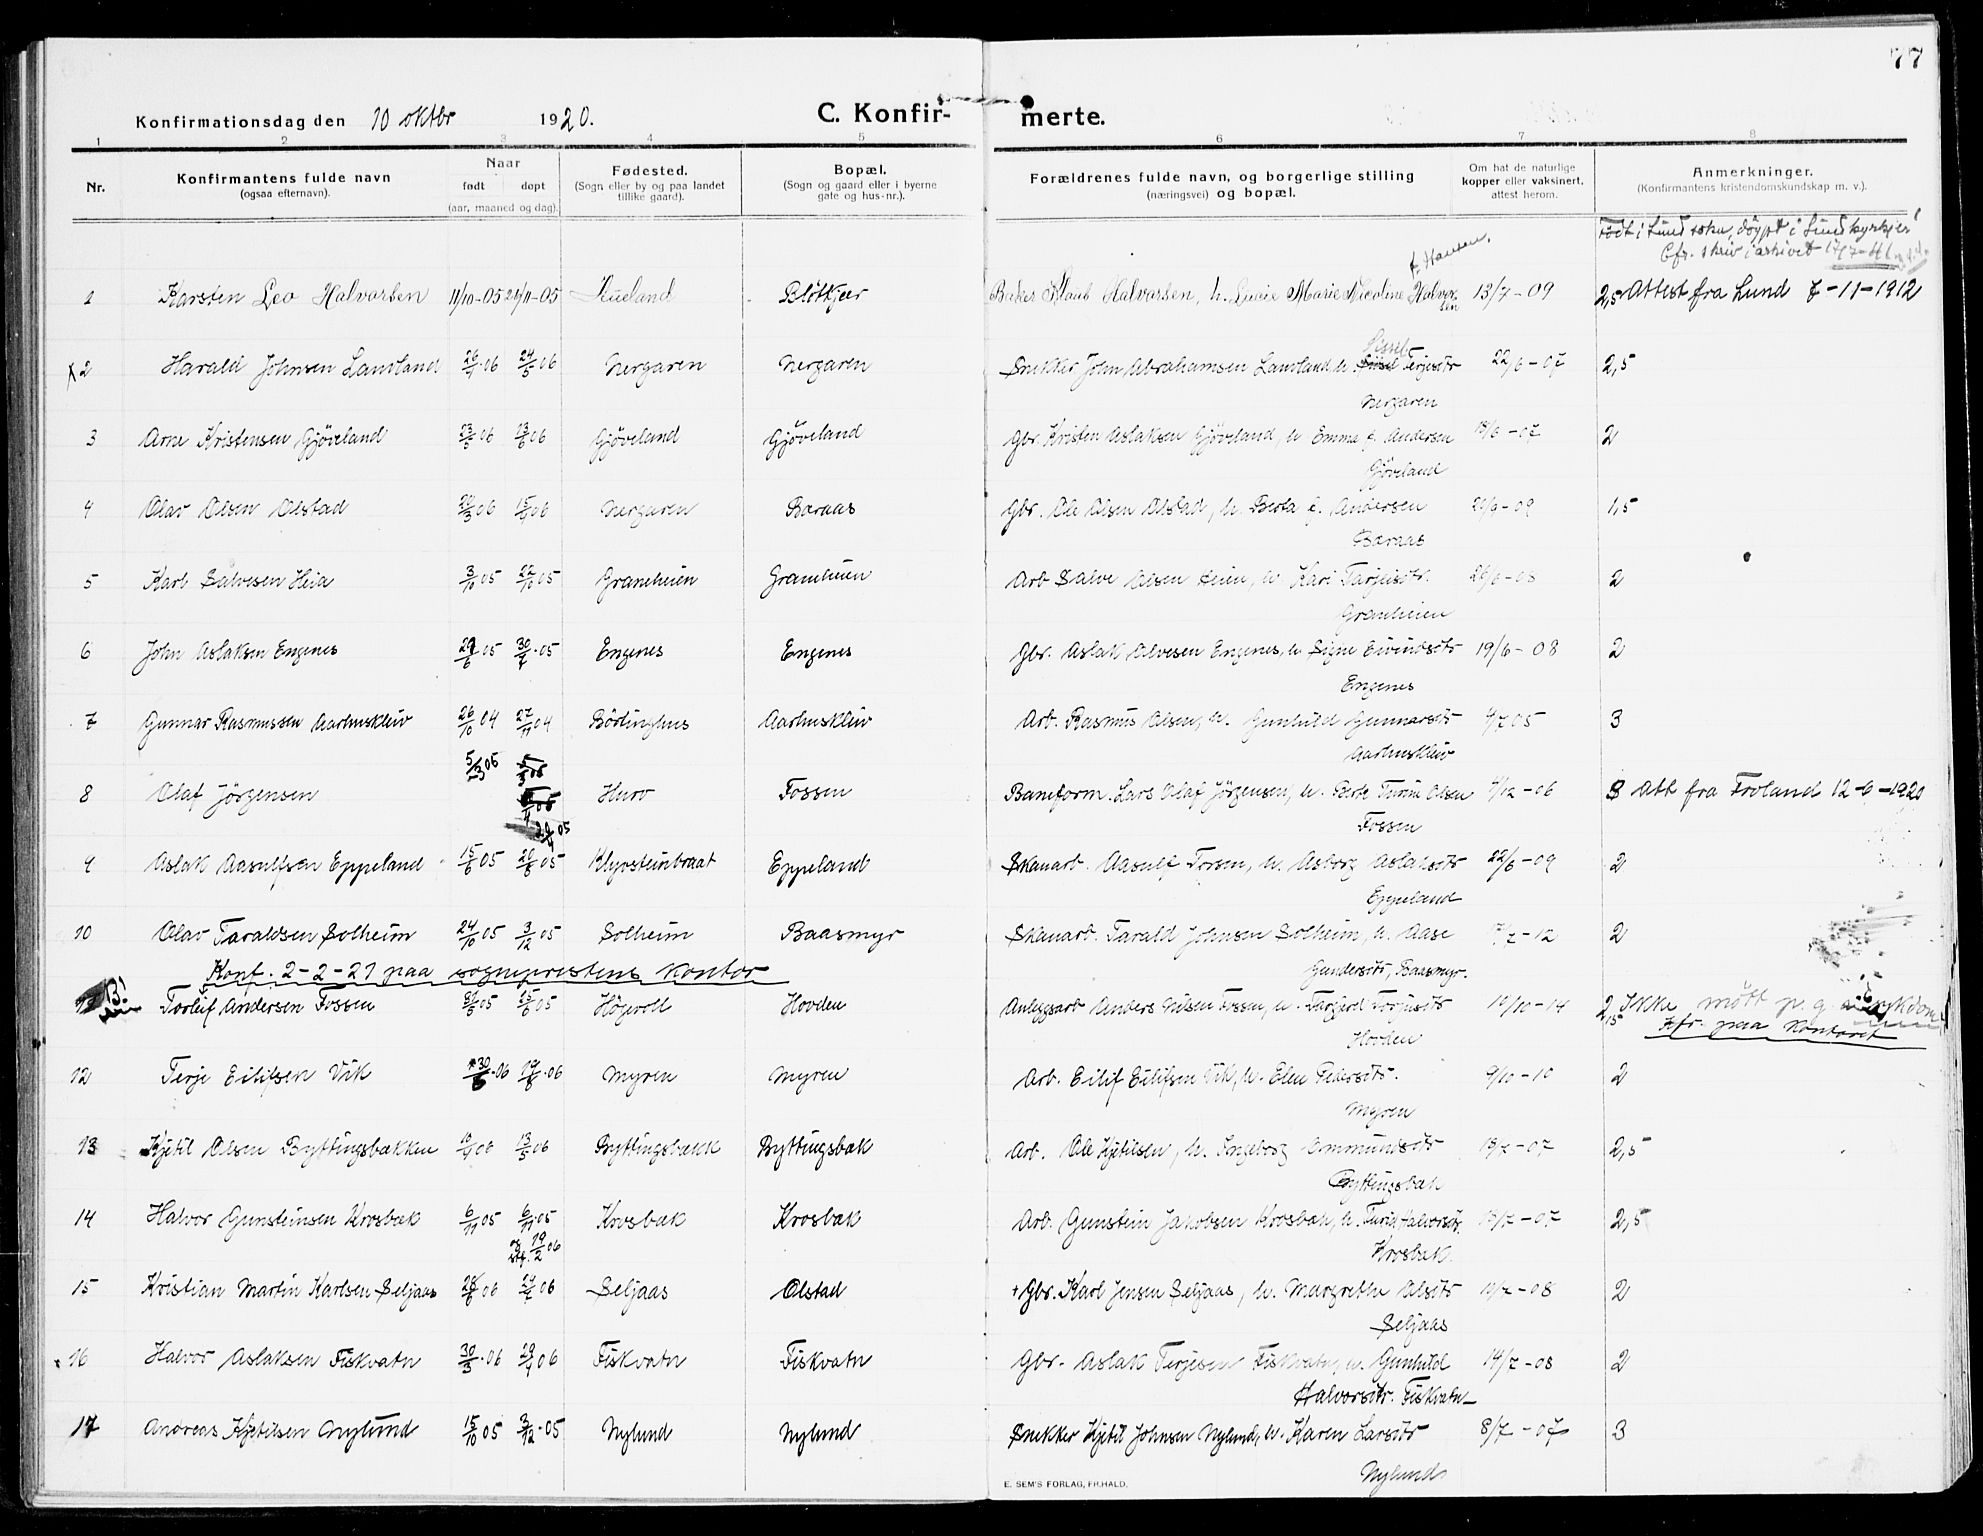 77
Konfirmationsdag den 10 oktbr 1920. C. Konfir- merte.
1 2 3 4 5 6 7 8
Nr. Konfirmantens fulde navn (ogsaa efternavn). Naar født døpt (aar, maaned og dag). Fødested. (Sogn eller by og paa landet tillike gaard). Bopæl. (Sogn og gaard eller i byerne gate og hus-nr.). Forældrenes fulde navn, og borgerlige stilling (næringsvei) og bopæl. Om hat de naturlige kopper eller vaksinert, attest herom. Anmerkninger. (Konfirmantens kristendomskundskap m. v.).
Födt i Lund sokn, döypt i Lund kyrkje!
Cfr. skriv i arkivet 17/7-41
f. Hansen.
1 Karsten Leo Halvorsen 11/10-05 /11-05 Blötkjær Baker Halvorsen, h. Lucie Marie Nicoline Halvorsen 13/7-09 2,5 Attest fra Lund 7-11-1912
Sissel
x2 Harald Johnsen Lauvland 26/4.06 24/5 06 Nergaren Nergaren Snekker John Abrahamsen Lauvland, h. Terjesdtr 22/6-07 2,5
Nergaren
3 Arne Kristensen Gjöveland 23/5 06 13/6 06 Gjöveland Gjöveland Gbr. Kristen Aslaksen Gjöveland, h Emma f. Andersen /6-07 2
Gjöveland
4 Olav Olsen Olstad /3 06 15/4 06 Nergaren Baraas Gbr. Ole Olsen Olstad, h. Berta f. Andersen 1,5
Baraas
5 Karl Salvesen Heia 3/10 05 22/10 05 Granheien Granheien Arb Salve Olsen Heien, h. Kari Tarjeisdtr. 26/6-08 2
Granheien
6 John Aslaksen Engenes /6 05 30/7.05 Engenes Engenes Gbr. Aslak Alvesen Engenes, h Signe Eivindsdtr 19/6-08 2
Engenes
7 Gunnar Rasmussen Aarhuskleiv 26/10 04 27/11 04 Börlinghus Aarhuskleiv Arb. Rasmus Olsen, h. Gunhild Gunnarsdtr 4/7 05 3
Aarhuskleiv
5/3 05
8 Olaf Jörgensen Hurv Fossen Baneform. Lars Olaf Jörgensen, h. Olsen /12-06 3 Att fra Froland 12-6-1920
Fossen
9 Aslak Aasulfsen Eppeland 15/6 05 20/8 05 Eppeland Skauarb. Aasulf Torsen, h. Asborg Aslaksdtr 22/6-09 2
Eppeland
10 Olav Taraldsen Solheim 24/10 05 3/12 05 Solheim Baasmyr Skauarb. Tarald Johnsen Solheim, h. Aase /7-12 2
Gundersdtr, Baasmyr.
Konf. 2-2-21 paa sogneprestens kontor
B! Torleif Andersen Fossen 25/6 05 Högvoll Hovden Anlæggsarb Anders Nilsen Fossen, h. Targjerd Torjusdtr 10/10-14 2,5 Ikke mött p. g. a. sykdom
Hovden Kfr. paa kontoret
12 Terje Eilifsen Vik 30/6.06 19/8.06 Myren Myren Arb. Eilif Eilifsen Vik, h. Elen Pedersdtr. 9/10-10 2
Myren
13 Kjetil Olsen Byttingsbakken 10/4 06 13/5 06 Byttingsbakk Byttingsbak Arb. Ole Kjetilsen, h. Ingeborg Ommundsdtr 19/7-07 2,5
Byttingsbak
14 Halvor Gunsteinsen Krosbak 6/11 05 6/11.05 Krosbak Krosbak Arb. Gunstein Jakobsen Krosbak, h. Turid Halvorsdtr. 13/7-07 2,5
19/2 06 Krosbak.
15 Kristian Martin Karlsen Seljaas 28/6 06 /7 06 Seljaas Olstad +Gbr. Karl Jensen Seljaas, h. Margrethe Olsdtr 10/7-08 2
Seljaas
16 Halvor Aslaksen Fiskvatn 30/3.06 29/4 06 Fiskvatn Fiskvatn Gbr. Aslak Terjesen Fiskvatn, h. Gunhild 14/7-08 2
Halvorsdtr. Fiskvatn
17 Andreas Kjetilsen Nylund 15/10 05 3/12.05 Nylund Nylund Snekker Kjetil Johnsen Nylund, h. Karen Larsdtr 8/7-07 3
Nylund
E. SEM'S FORLAG, FR.HALD.